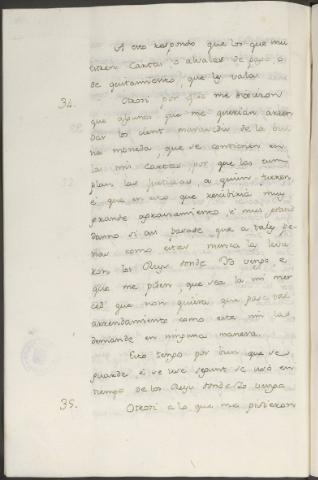 A esto respondo que los que mu
cieren Cartas, o alvalas de pago, o
de quitamiento, que les vala.
34. Otrosi por que me dixeron
que algunos que me querian arren
dar los cient maravedis de la bue
na moneda, que se contienen en
las mis Cartas por que las cum
plan las justicias, a quien fueren
e que en esto que recibirian muy
grande agraviamiento, e muy grand
danno si asi pasase que a tales pe
nas como estas nunca las leva
ron los Reyes onde Yo vengo e
que me piden, que sea la mi mer
ced que non quiera que pase tal
arrendamiento como este nin las
demande en ninguna manera.
Esto tengo por bien que se
guarde e se use segunt se usó en
tiempo de los Reyes onde Yo vengo
35. Otrosi a lo que me pidieron